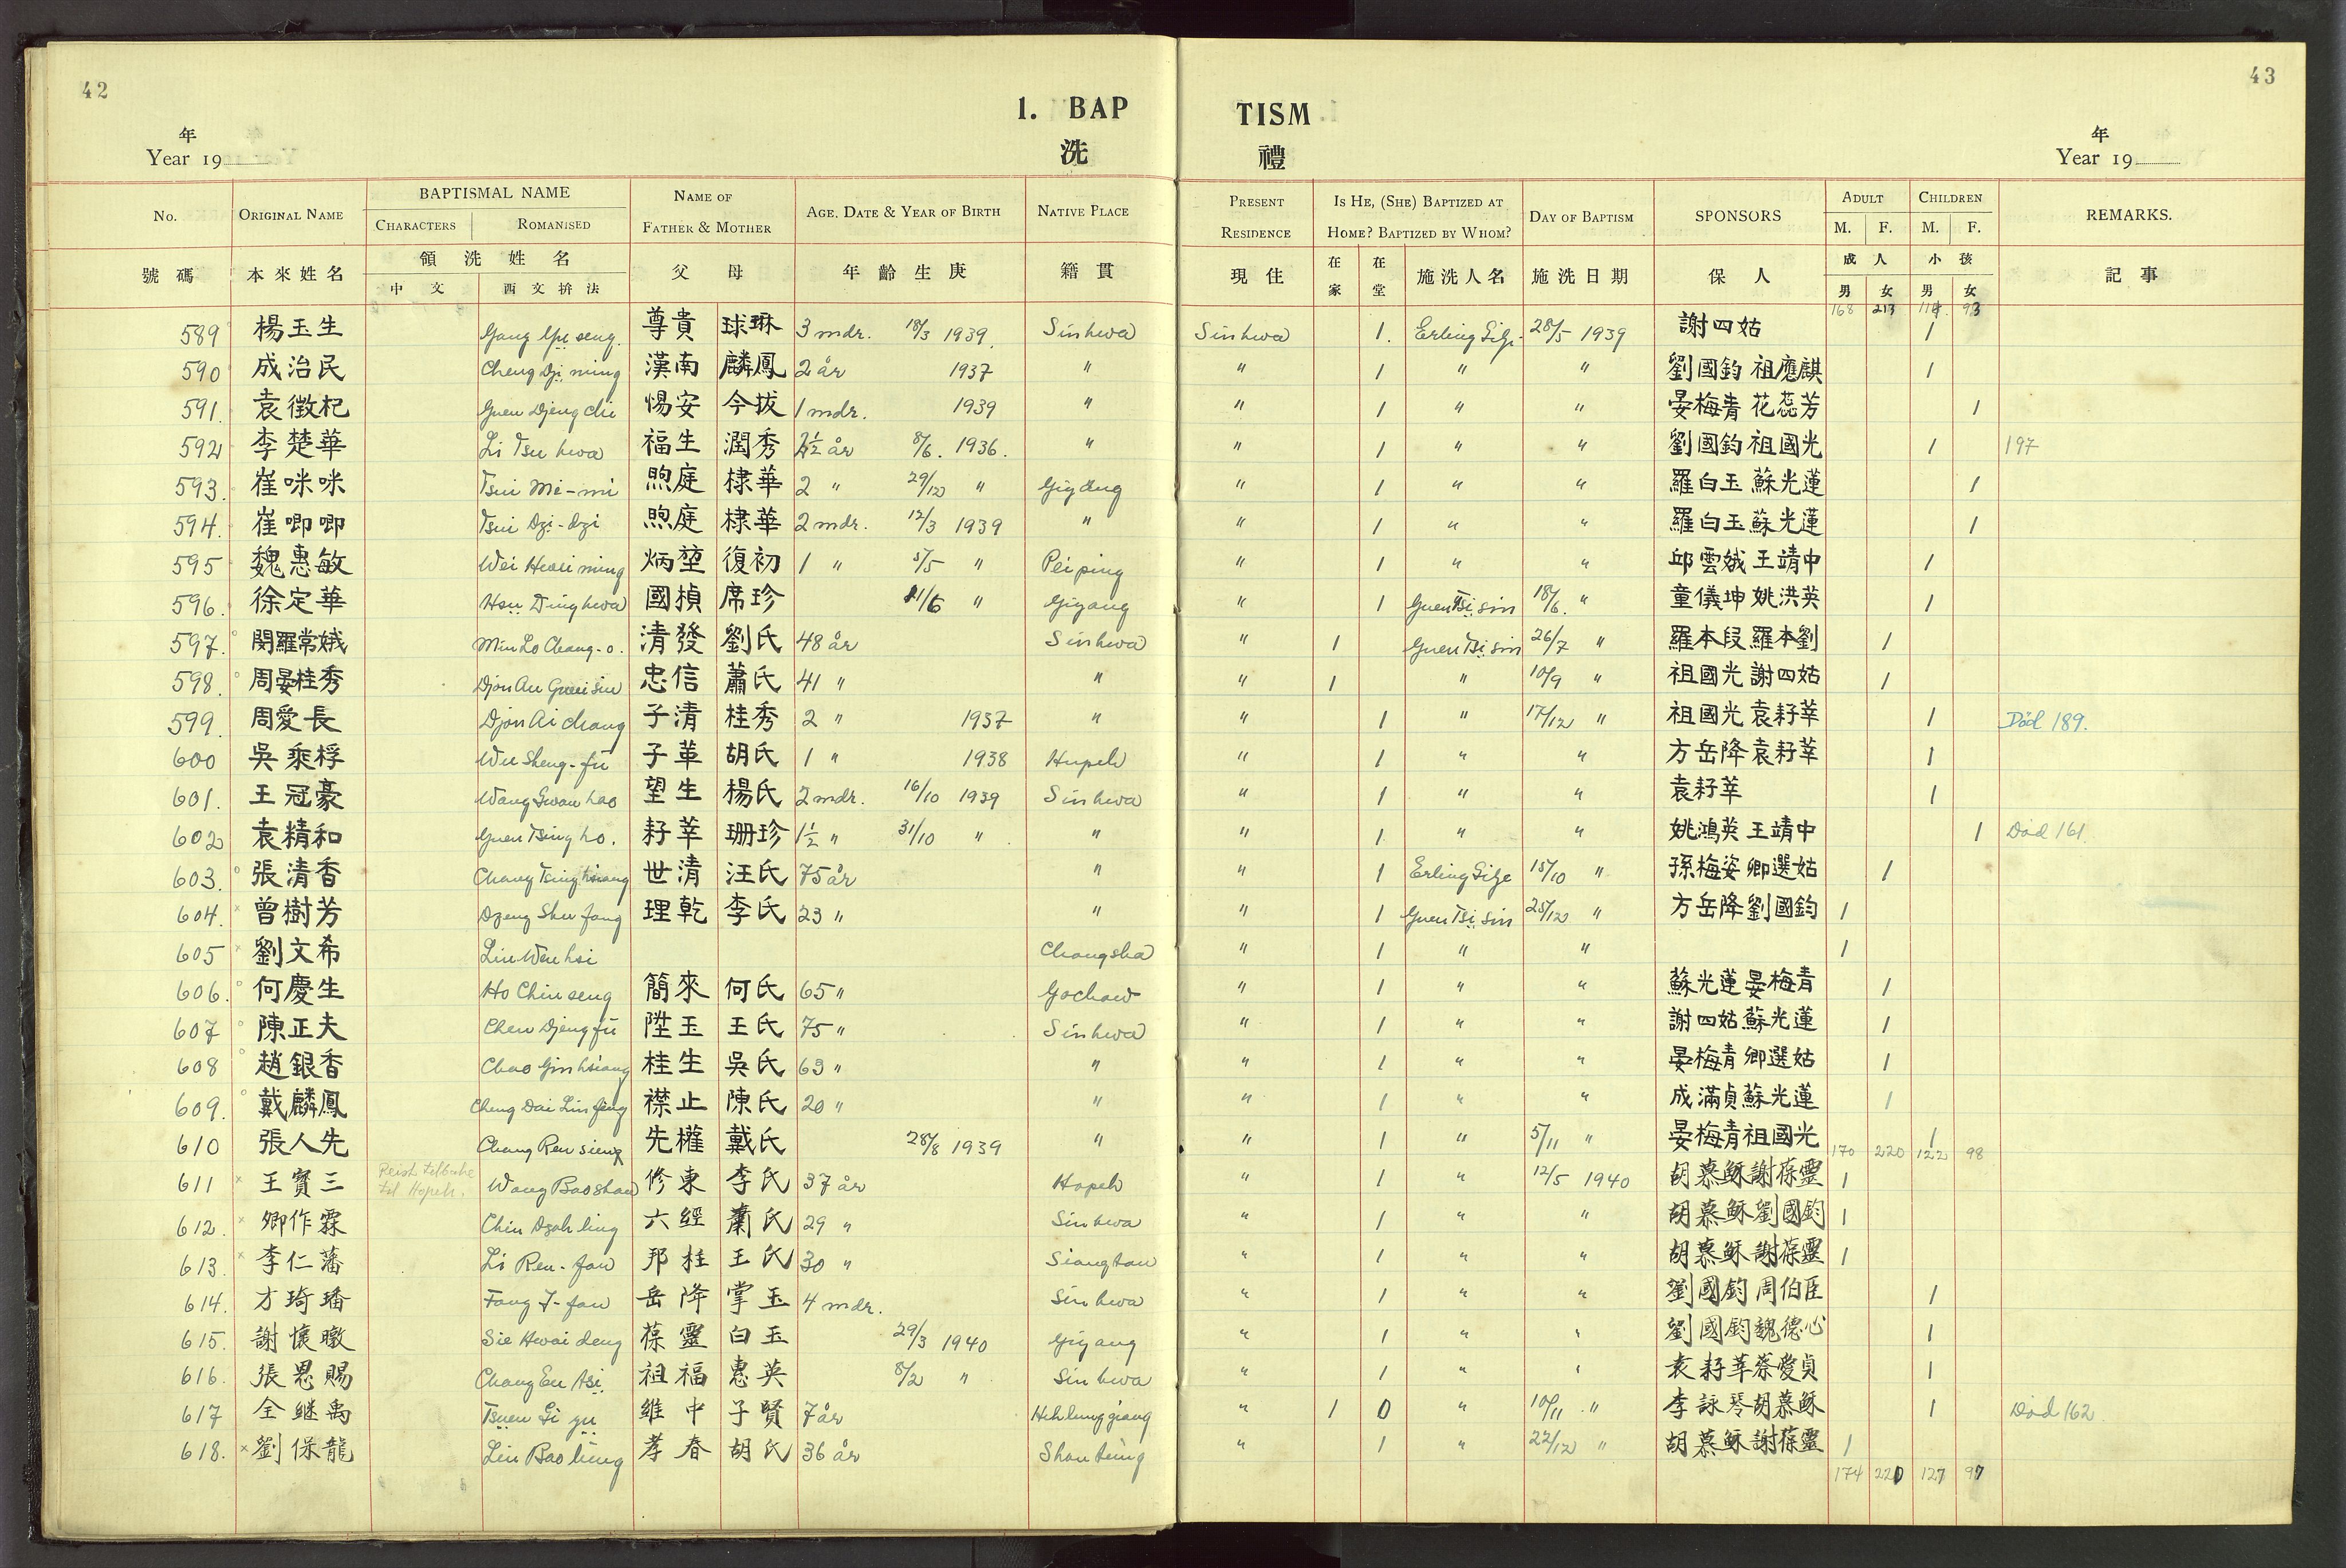 42
43
1. BAP TISM
洗 禮
年
Year 19
年
Year 19
No. ORIGINAL NAME BAPTISMAL NAME CHARACTERS ROMANISED NAME OF FATHER & MOTHER AGE, DATE & YEAR OF BIRTH NATIVE PLACE PRESENT RESIDENCE IS HE, (SHE) BAPTIZED AT HOME? BAPTIZED BY WHOM? DAY OF BAPTISM SPONSORS ADULT M. F. CHILDREN M. F. REMARKS.
號碼 本來姓名 領洗姓名 中文 西文拚法 父母 年齡生庚 籍貫 現住 在家 在堂 施洗人名 施洗日期 保人 成人 男 女 小孩 男 女 記事
168 213 93
589 楊玉生 seng 尊貴 球琳 3 mdr. 18/3 1939. Sinhwa Sinhwa 1. Erling Gilje 28/5 1939 謝四姑 1
590 成治民 Cheng Dzi ming 漢南 麟鳳 2 år 1937 " " 1 " " 劉國鈞 祖應麒 1
591. 袁徵杞 Guen Djeng chi 惕安 今拔 1 mdr. 1939 " " 1 " " 晏梅青 花蕊芳 1
592 李楚華 Li Tsu hwa 福生 潤秀 2½ år 8/6. 1936. " " 1 " " 劉國鈞 祖國光 1 197
593. 崔咪咪 Tsui Mi-mi 煦庭 棣華 2 " 29/12 " Giyang " 1 " " 羅白玉 蘇光蓮 1
594. 崔唧唧 Tsui Dzi-dzi 煦庭 棣華 2 mdr. 12/3 1939 " " 1 " " 羅白玉 蘇光蓮 1
595 魏惠敏 Wei Hwei ming 炳堃 復初 1 " 5/5 " Peiping " 1 " " 邱雲娥 王靖中 1
596. 徐定華 Hsu Ding hwa 國楨 席珍 11/6 " Giyang " 1 Guen Tsi sin 18/6. " 童儀坤 姚洪英 1
597. 閔羅常娥 Min Lo Chang-o. 清發 劉氏 48 år Sinhwa " 1 Guen Tsi sin 26/7 " 羅本段 羅本劉 1
598. 周晏桂秀 忠信 蕭氏 41 " " " 1 " 10/9 " 祖國光 謝四姑 1
599. 周愛長 Djou Ai chang 子清 桂秀 2 " 1937 " " 1 " 17/12 " 祖國光 袁耔莘 1 Död 189.
600 吳乘桴 Wu Sheng-fu 子革 胡氏 1 " 1938 Hupeh " 1 " " 方岳降 袁耔莘 1
601. 王冠豪 Wang Gwan hao 望生 楊氏 2 mdr. 16/10 1939 Sinhwa " 1 " " 袁耔莘 1
602 袁精和 Guen Tsing ho. 耔莘 珊珍 1½ " 31/10 " " " 1 " " 姚鴻英 王靖中 1 Död 161.
603. 張清香 Chang Tsing hsiang 世清 汪氏 75 år " " 1 Erling Gilje 15/10 " 孫梅姿 卿選姑 1
604. 曾樹芳 Dzeng Shu fang 理乾 李氏 23 " " " 1 Guen Tsi sin 25/12 " 方岳降 劉國鈞 1
605 劉文希 Liu Wen hsi Changsha " 1 " " 1
606. 何慶生 Ho Chin seng 簡來 何氏 65 " Yochow " 1 " " 蘇光蓮 晏梅青 1
607 陳正夫 Chen Djeng fu 陞玉 王氏 75 " Sinhwa " 1 " " 謝四姑 蘇光蓮 1
608 趙銀香 Chao Gin hsiang 桂生 吳氏 63 " " " 1 " " 晏梅青 卿選姑 1
609. 戴麟鳳 Cheng Dai Lin feng 襟止 陳氏 20 " " " 1 " " 成滿貞 蘇光蓮 1
610 張人先 Chang Ren sieng 先權 戴氏 28/8 1939 " " 1 " 5/11 " 晏梅青 祖國光 1
170 220 122 98
611 王寶三 Reist tilbake til Hopeh. Wang Bao shan 修東 李氏 37 år Hopeh " 1 " 12/5 1940 胡慕穌 謝葆靈 1
612. 卿作霖 Chin Dzoh ling 六經 蕭氏 29 " Sinhwa " 1 " " 胡慕穌 劉國鈞 1
613. 李仁藩 Li Ren-fan 邦桂 王氏 30 " Siangtan " 1 " " 胡慕穌 謝葆靈 1
614. 方琦璠 Fang I-fan 岳降 掌玉 4 mdr. Sinhwa " 1 " " 劉國鈞 周伯臣 1
615. 謝懷暾 Sie Hwai deng 葆靈 白玉 29/3 1940 Giyang " 1 " " 劉國鈞 魏德心 1
616. 張恩賜 Chang En 祖福 惠英 8/2 " Sinhwa " 1 " " 袁耔莘 蔡愛貞 1
617 全継禹 Tsuen Gi yu 維中 子賢 7 år Hehlunggiang " 1 0 " 10/11 " 李詠琴 胡慕穌 1 Död 162.
618. 劉保龍 Liu Bao lung 孝春 胡氏 36 år Shantung " 1 " 22/12 " 胡慕穌 謝葆靈 1
174 220 127 97